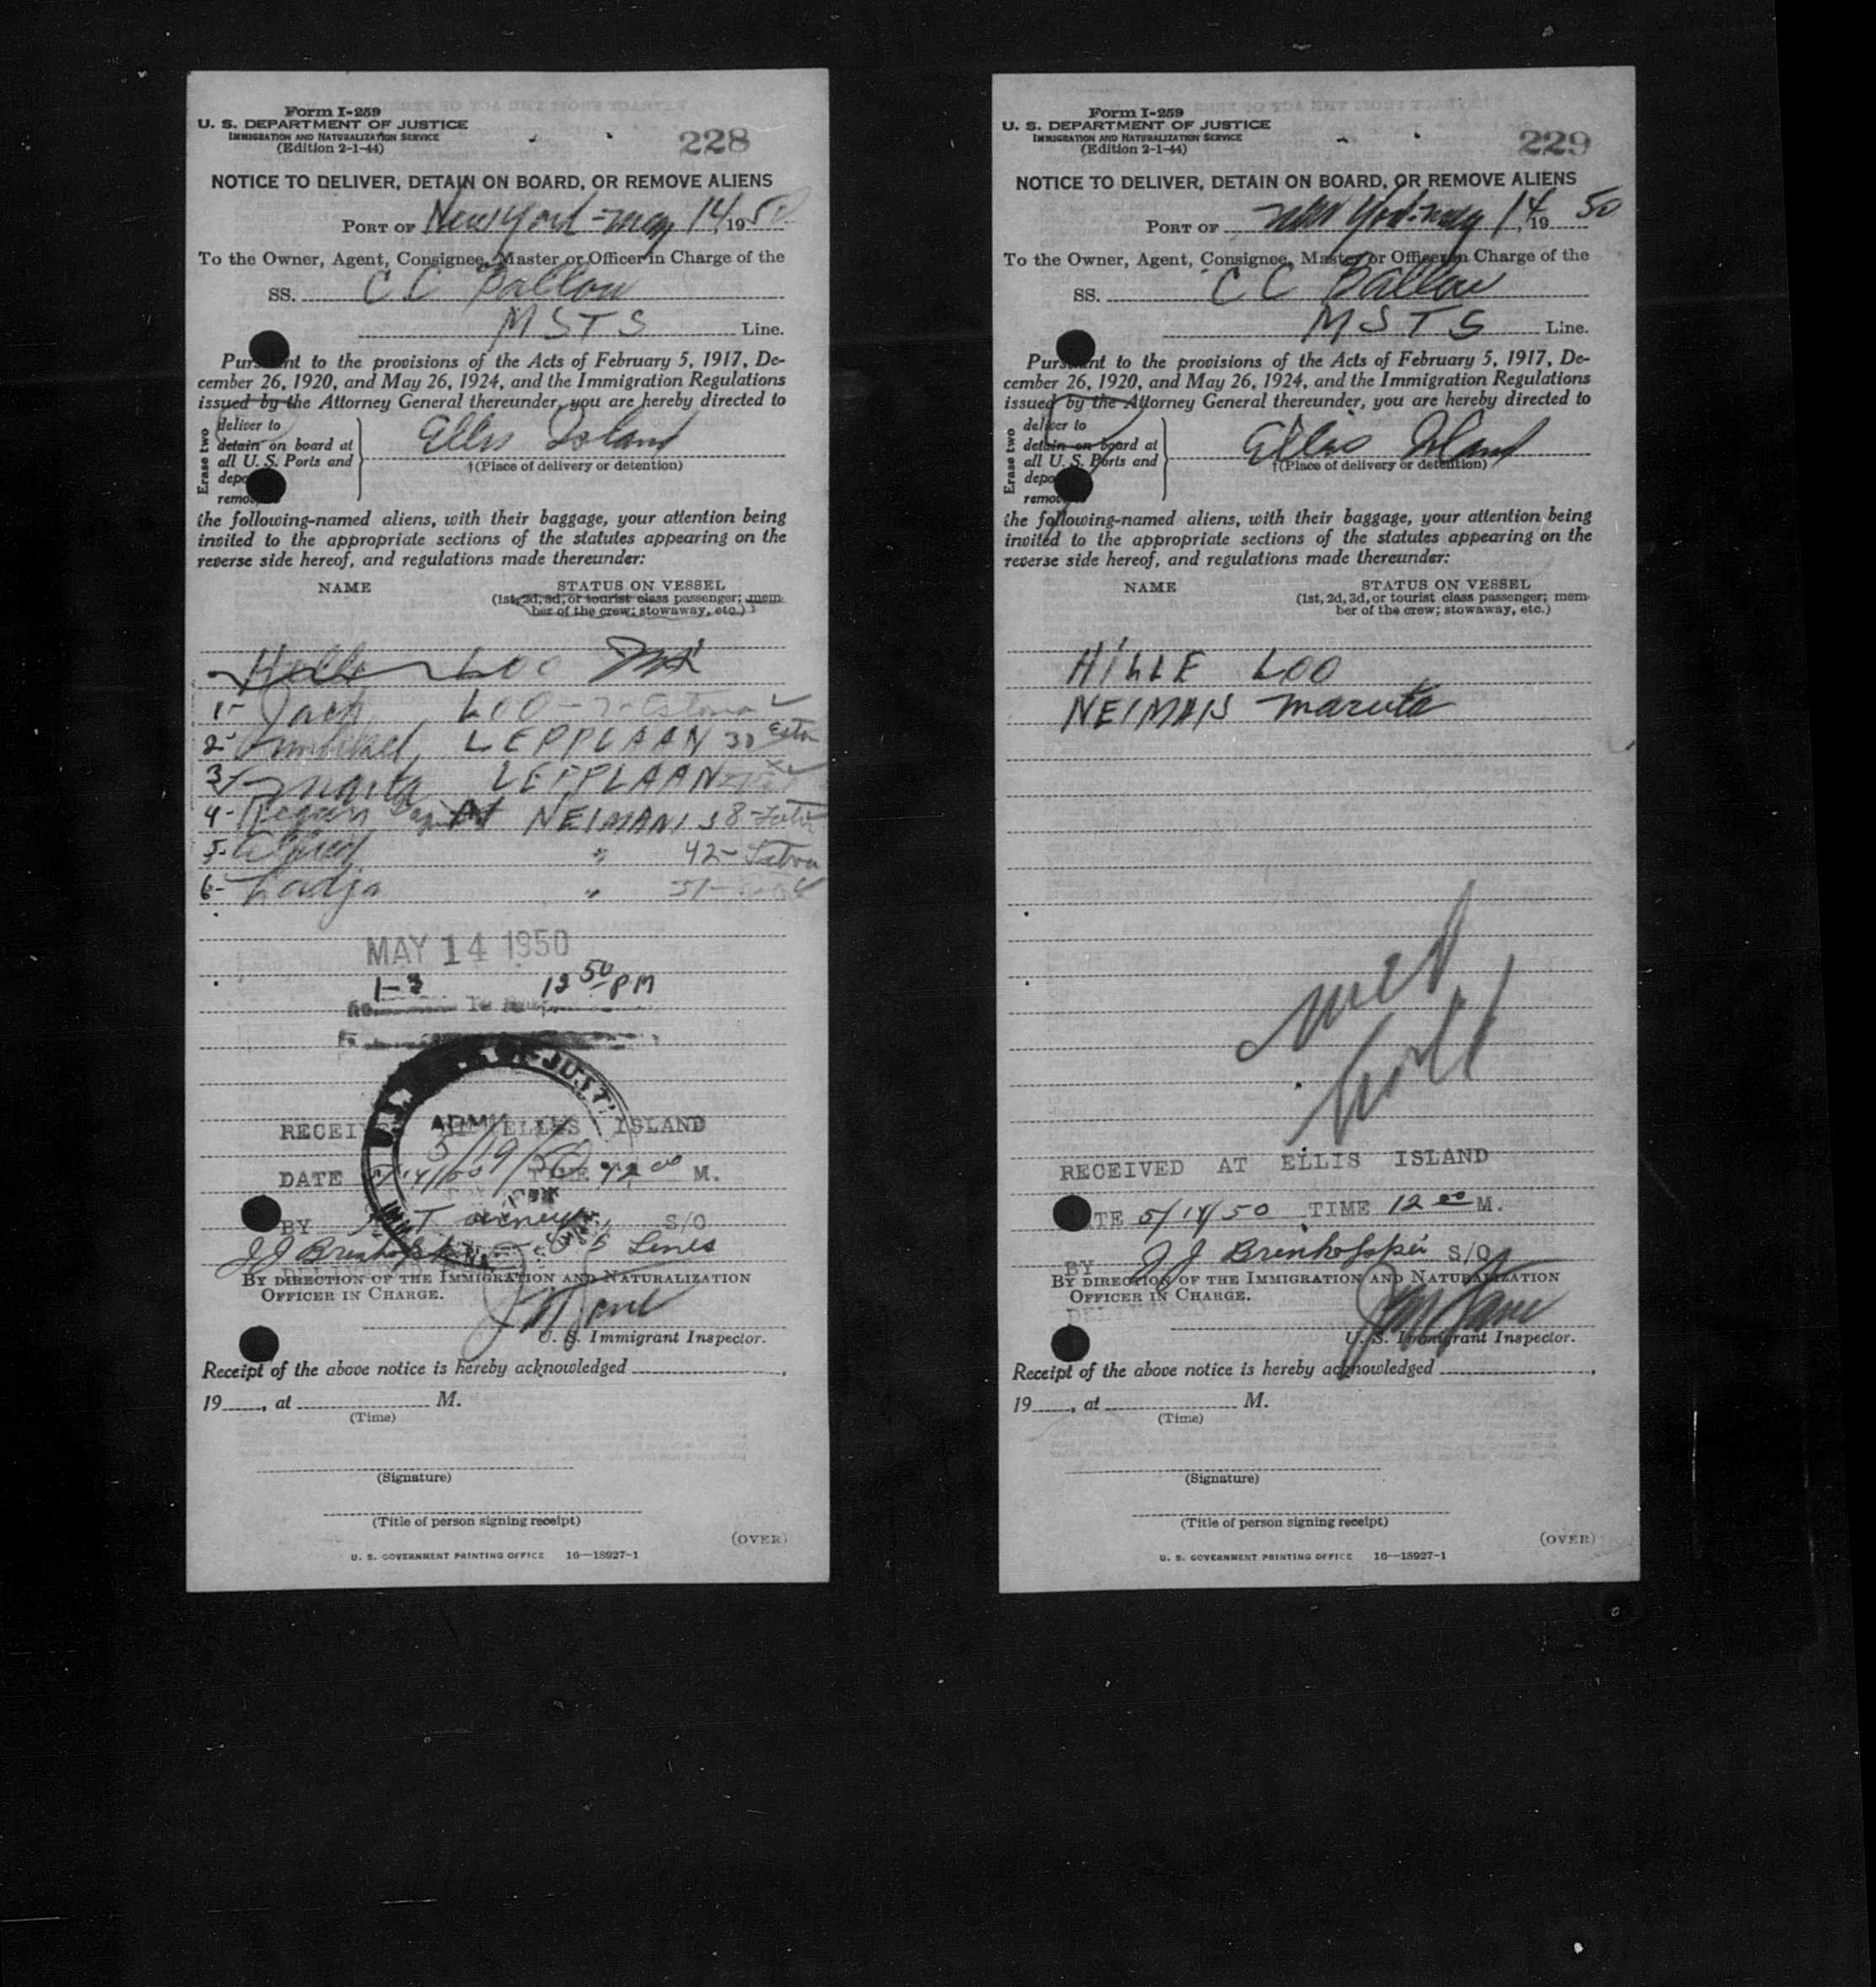 Form I-259
U. S. DEPARTMENT OF JUSTICE
IMMIGRATION AND NATURALIZATION SERVICE
(Edition 2-1-44)
228
NOTICE TO DELIVER, DETAIN ON BOARD, OR REMOVE ALIENS
PORT OF New York - May 14, 1950
To the Owner, Agent, Consignee, Master or Officer in Charge of the
SS. C C Ballou
MSTS Line.
Pursuant to the provisions of the Acts of February 5, 1917, De-
cember 26, 1920, and May 26, 1924, and the Immigration Regulations
issued by the Attorney General thereunder, you are hereby directed to
Erase two
deliver to
detain on board at
all U. S. Ports and
Ellis Island
†(Place of delivery or detention)
the following-named aliens, with their baggage, your attention being
invited to the appropriate sections of the statutes appearing on the
reverse side hereof, and regulations made thereunder:
NAME
STATUS ON VESSEL
(1st, 2d, 3d, or tourist class passenger; mem-
ber of the crew; stowaway, etc.)
LOO
1- LOO - 7-
2- LEPPLAAN
3- LEPPLAAN
4- NEIMANIS 38
5- " 42-
6- "
MAY 14 1950
1-3 12 50 PM
RECEIVED AT ELLIS ISLAND
5/19/50
DATE 5/14/50 TIME 12 00 M.
BY S/O
Lines
BY DIRECTION OF THE IMMIGRATION AND NATURALIZATION
OFFICER IN CHARGE.
U. S. Immigrant Inspector.
Receipt of the above notice is hereby acknowledged
19, at M.
(Time)
(Signature)
(Title of person signing receipt)
(OVER)
U. S. GOVERNMENT PRINTING OFFICE 16—18927-1
Form I-259
U. S. DEPARTMENT OF JUSTICE
IMMIGRATION AND NATURALIZATION SERVICE
(Edition 2-1-44)
229
NOTICE TO DELIVER, DETAIN ON BOARD, OR REMOVE ALIENS
PORT OF New York - May 14, 1950
To the Owner, Agent, Consignee, Master or Officer in Charge of the
SS. C C Ballou
MSTS Line.
Pursuant to the provisions of the Acts of February 5, 1917, De-
cember 26, 1920, and May 26, 1924, and the Immigration Regulations
issued by the Attorney General thereunder, you are hereby directed to
Erase two
deliver to
detain on board at
all U. S. Ports and
Ellis Island
†(Place of delivery or detention)
the following-named aliens, with their baggage, your attention being
invited to the appropriate sections of the statutes appearing on the
reverse side hereof, and regulations made thereunder:
NAME
STATUS ON VESSEL
(1st, 2d, 3d, or tourist class passenger; mem-
ber of the crew; stowaway, etc.)
HILLE LOO
Maruta
RECEIVED AT ELLIS ISLAND
DATE 5/14/50 TIME 12 00 M.
BY S/O
BY DIRECTION OF THE IMMIGRATION AND NATURALIZATION
OFFICER IN CHARGE.
U. S. Immigrant Inspector.
Receipt of the above notice is hereby acknowledged
19, at M.
(Time)
(Signature)
(Title of person signing receipt)
(OVER)
U. S. GOVERNMENT PRINTING OFFICE 16—18927-1